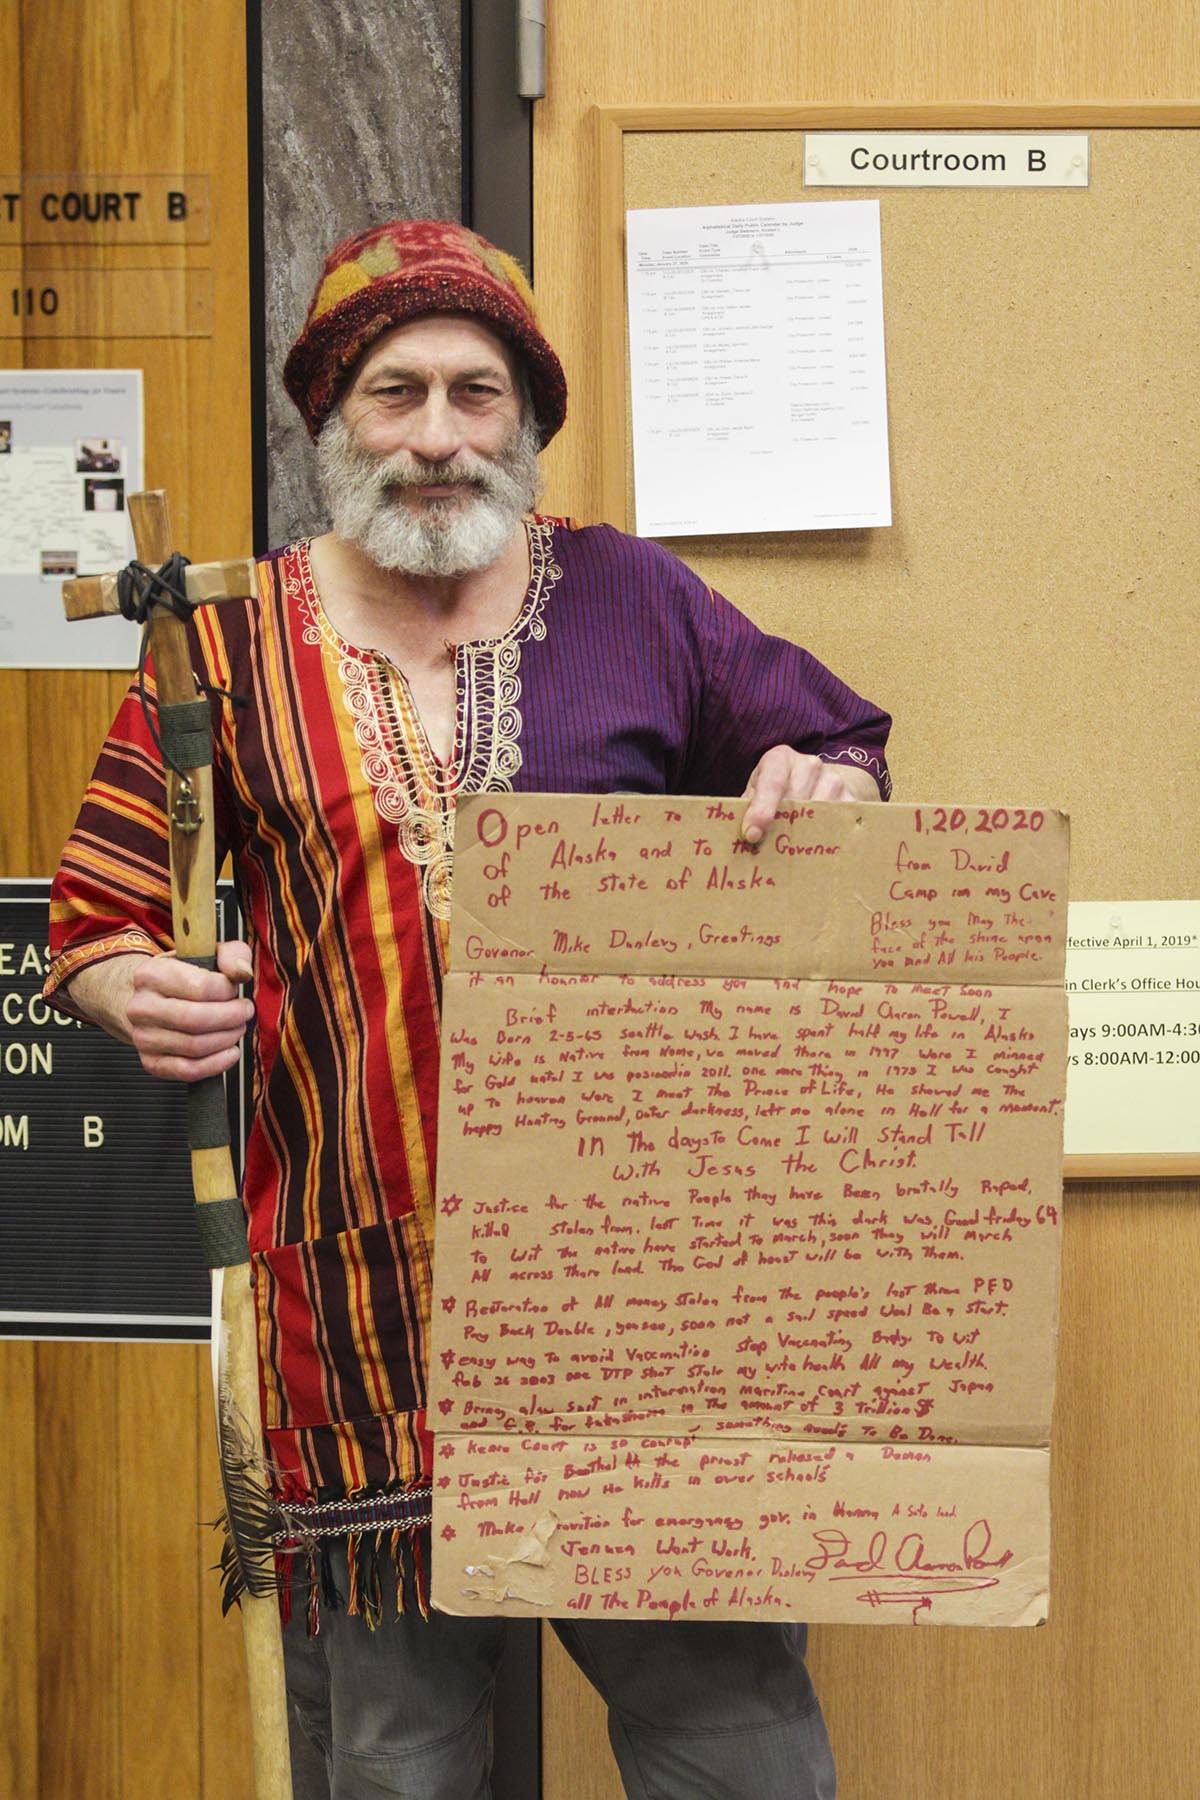 T COURT B
110
Courtroom B
Alaska Court System
Alphabetical Daily Public Calendar by Judge
EAS
ION
OM B
ffective April 1, 2019*
in Clerk's Office Hou
ays 9:00AM-4:3
ys 8:00AM-12:00
Open letter to the People 1,20,2020
of Alaska and to the Govenor from David
of the state of Alaska Camp in my Cave
Bless you May The
face of the shine upon
you and All his People.
Govenor Mike Dunlevy, Greetings
it an hounor to address you and hope to meet soon
Brief interduction My name is David Aaron Powell, I
was Born 2-5-65 seattle wash. I have spent half my life in Alaska
My wife is Native from Nome, we moved there in 1997 were I minned
for Gold until I was posinedin 2011. one more thing in 1973 I was caught
up to heaven were I meet The Prince of Life, He showed me The
happy Hunting Ground, outer darkness, left me alone in Hell for a moment.
IN The days to Come I will Stand Tall
with Jesus the Christ.
Justice for the native People they have Been brutally Raped,
killed stolen from. last Time it was this dark was Good friday 64
to wit The native have started To march, soon They will march
All across There land. The God of hoast will be with Them.
Restoration of All money Stolen from The people's last three PFD
Pay Back Double, you see, soon not a sail speed Woul Be a start.
easy way To avoid Vaccination stop Vaccinating Baby. To wit
feb 26 2003 one DTP shot stole my wife health All my wealth.
Bring a law suit in internation maritime court against Japan
and G.E. for fukashima in The amount of 3 Trillion $
something needs To Be Done.
Kenai Court is so corrupt
Justic for Beethal AK the priest released a Demon
from Hell now He Kills in over schools
Make provition for emergency gov. in Homer A Safe land
Jenuea Wont Work.
BLESS you Govenor Dunlevy David Aaron Powell
all The People of Alaska.